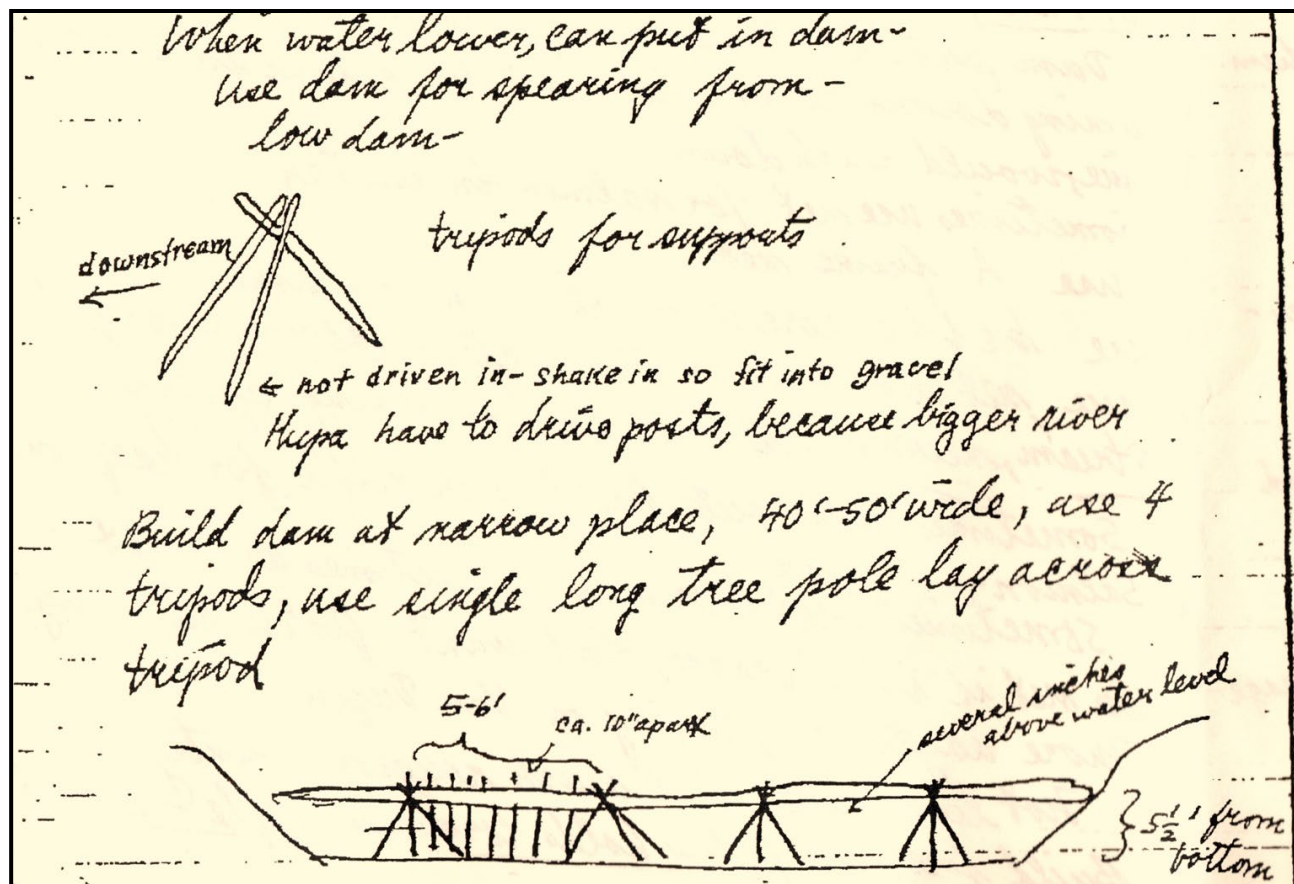 When water lower, can put in dam-
use dam for spearing from-
low dam-
downstream
tripods for supports
← not driven in- shake in so fit into gravel
Hupa have to drive posts, because bigger river
Build dam at narrow place, 40'-50' wide, use 4
tripods, use single long tree pole lay across
tripod
5-6'
ca. 10" apart
several inches
above water level
5½' from
bottom